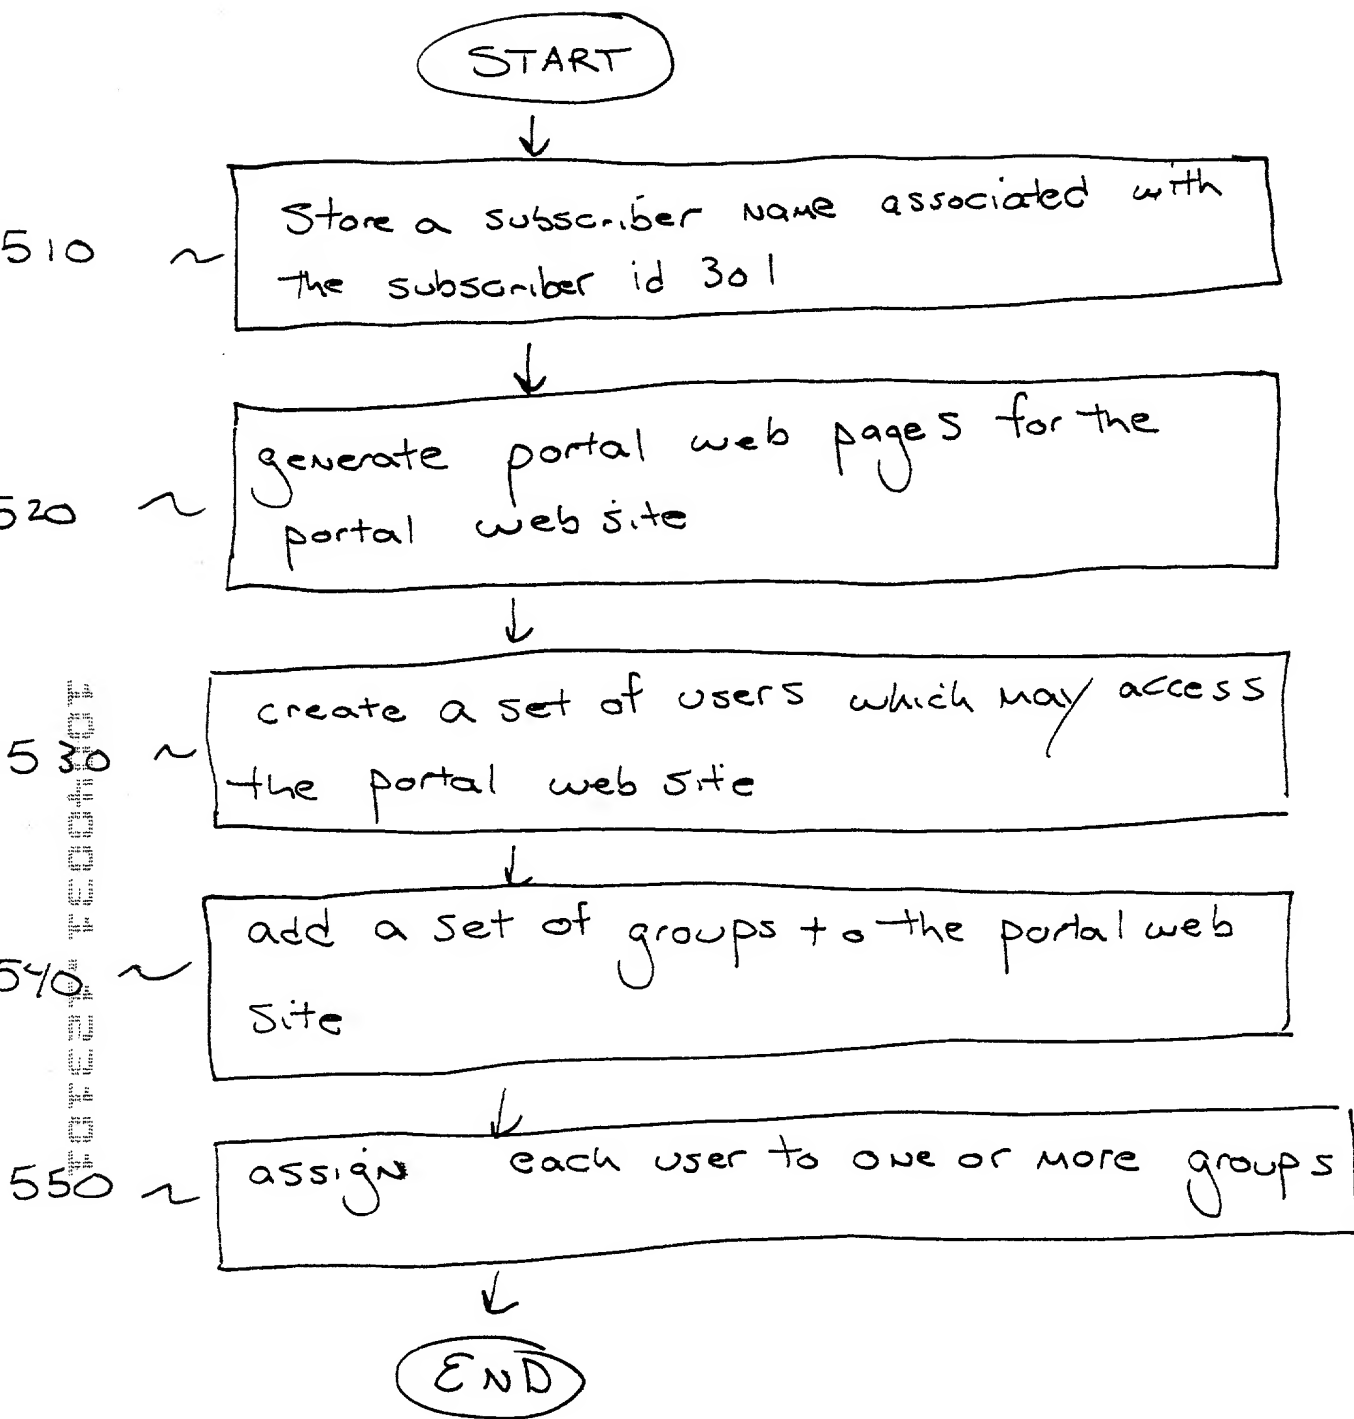 START
510 ~ Store a subscriber name associated with
the subscriber id 301
520 ~ generate portal web pages for the
portal web site
530 ~ create a set of users which may access
the portal web site
540 ~ add a set of groups to the portal web
site
550 ~ assign each user to one or more groups
END